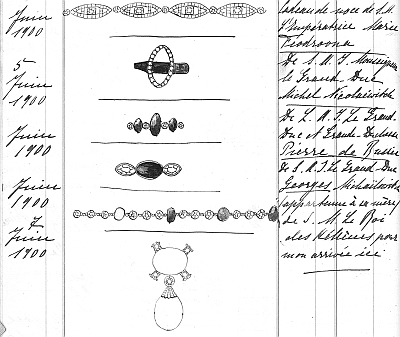 Juin
1900
Cadeau de noce de S. M.
l'Impératrice Marie
Feodrovna
5
Juin
1900
De S. A. I. Monseigneur
le Grand Duc
Michel Nicolaiévitch
Juin
1900
De L. A. I. Le Grand
Duc et Grande Duchesse
Pierre de Russie
Juin
1900
De S. A. I. Le Grand Duc
Georges Michailovitch
appartenue à sa mère
7
Juin
1900
de S. M. Le Roi
des Hellènes pour
mon arrivée ici